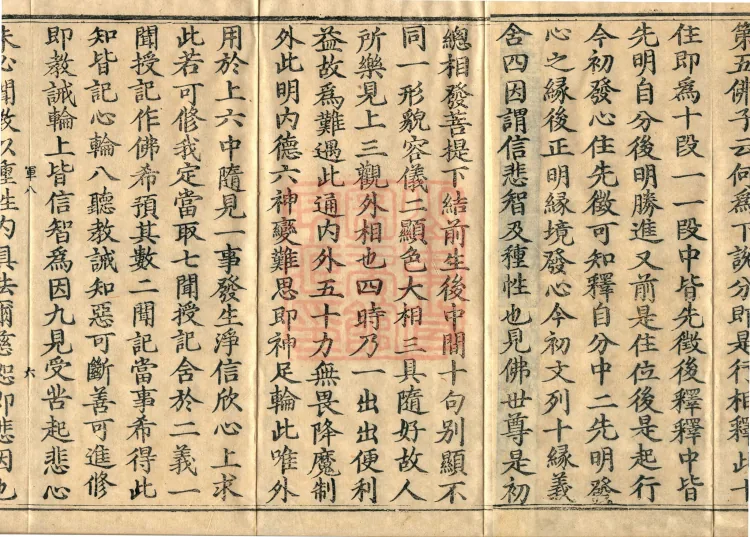 第五佛子云何爲下說分即是行相釋此十
住即爲十段一一段中皆先徵後釋釋中皆
先明自分後明勝進又前是住位後是起行
今初發心住先徵可知釋自分中二先明發
心之緣後正明緣境發心今初文列十緣義
舍四因謂信悲智及種性也見佛世尊是初
總相發菩提下結前生後中間十句別顯不
同一形貌容儀二顯色大相三具隨好故人
所樂見上三觀外相也四時乃一出出便利
益故爲難遇此通內外五十力無畏降魔制
外此明內德六神變難思即神足輪此唯外
用於上六中隨見一事發生淨信欣心上求
此若可修我定當取七聞授記舍於二義一
聞授記作佛希預其數二聞記當事希得此
知皆記心輪八聽教誡知惡可斷善可進修
即教誡輪上皆信智爲因九見受苦起悲心
軍八
六
未必聞教以重生內具法爾慈恕即悲因也